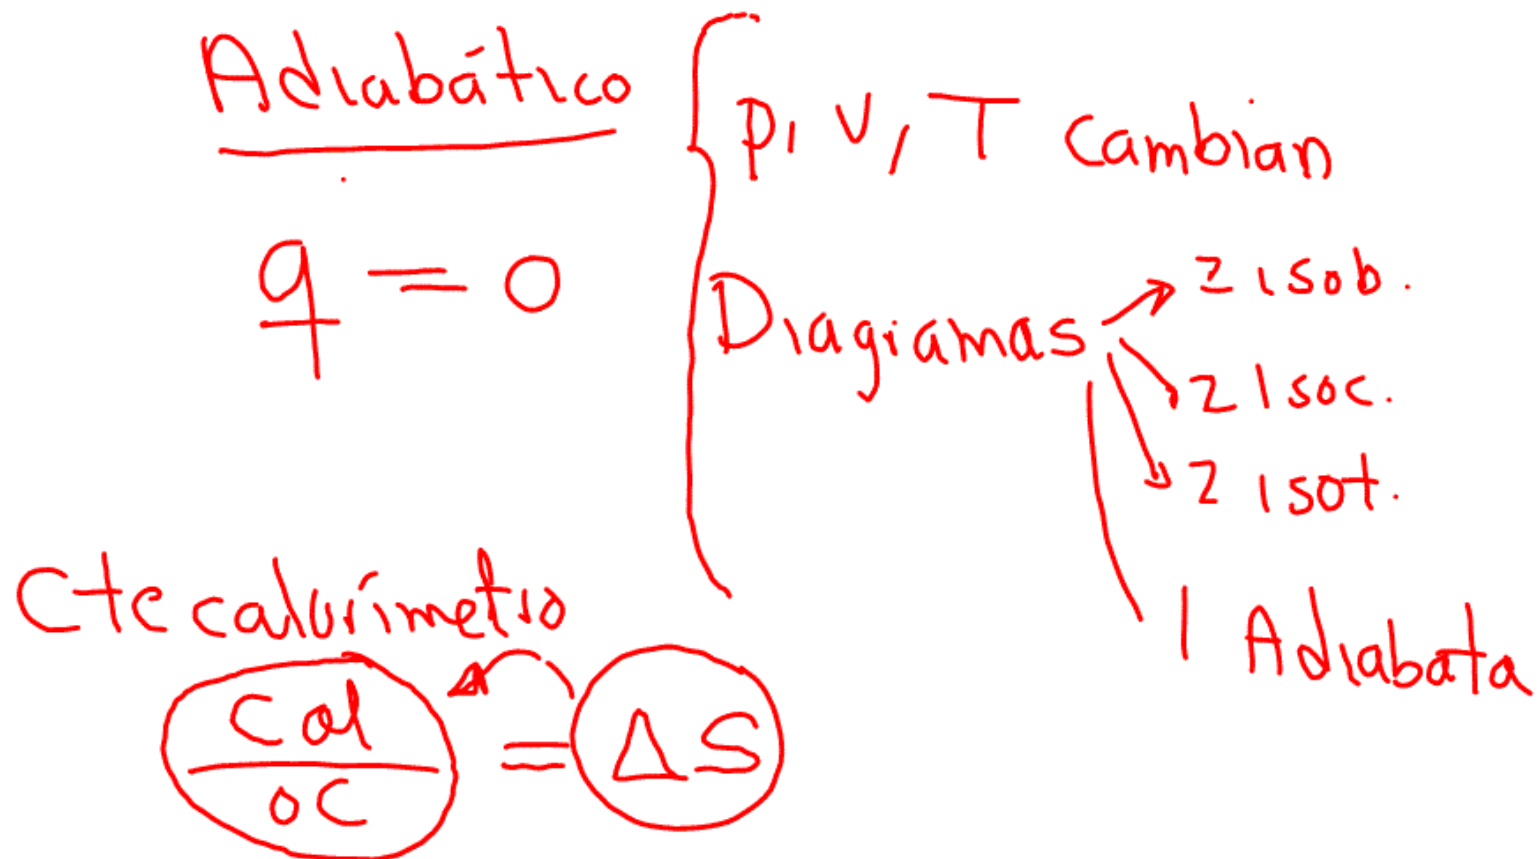 Adiabático
q = 0
P, V, T Cambian
Diagramas
2 isob.
2 Isoc.
2 isot.
1 Adiabata
Cte calorímetro
Cal
°C
= ΔS